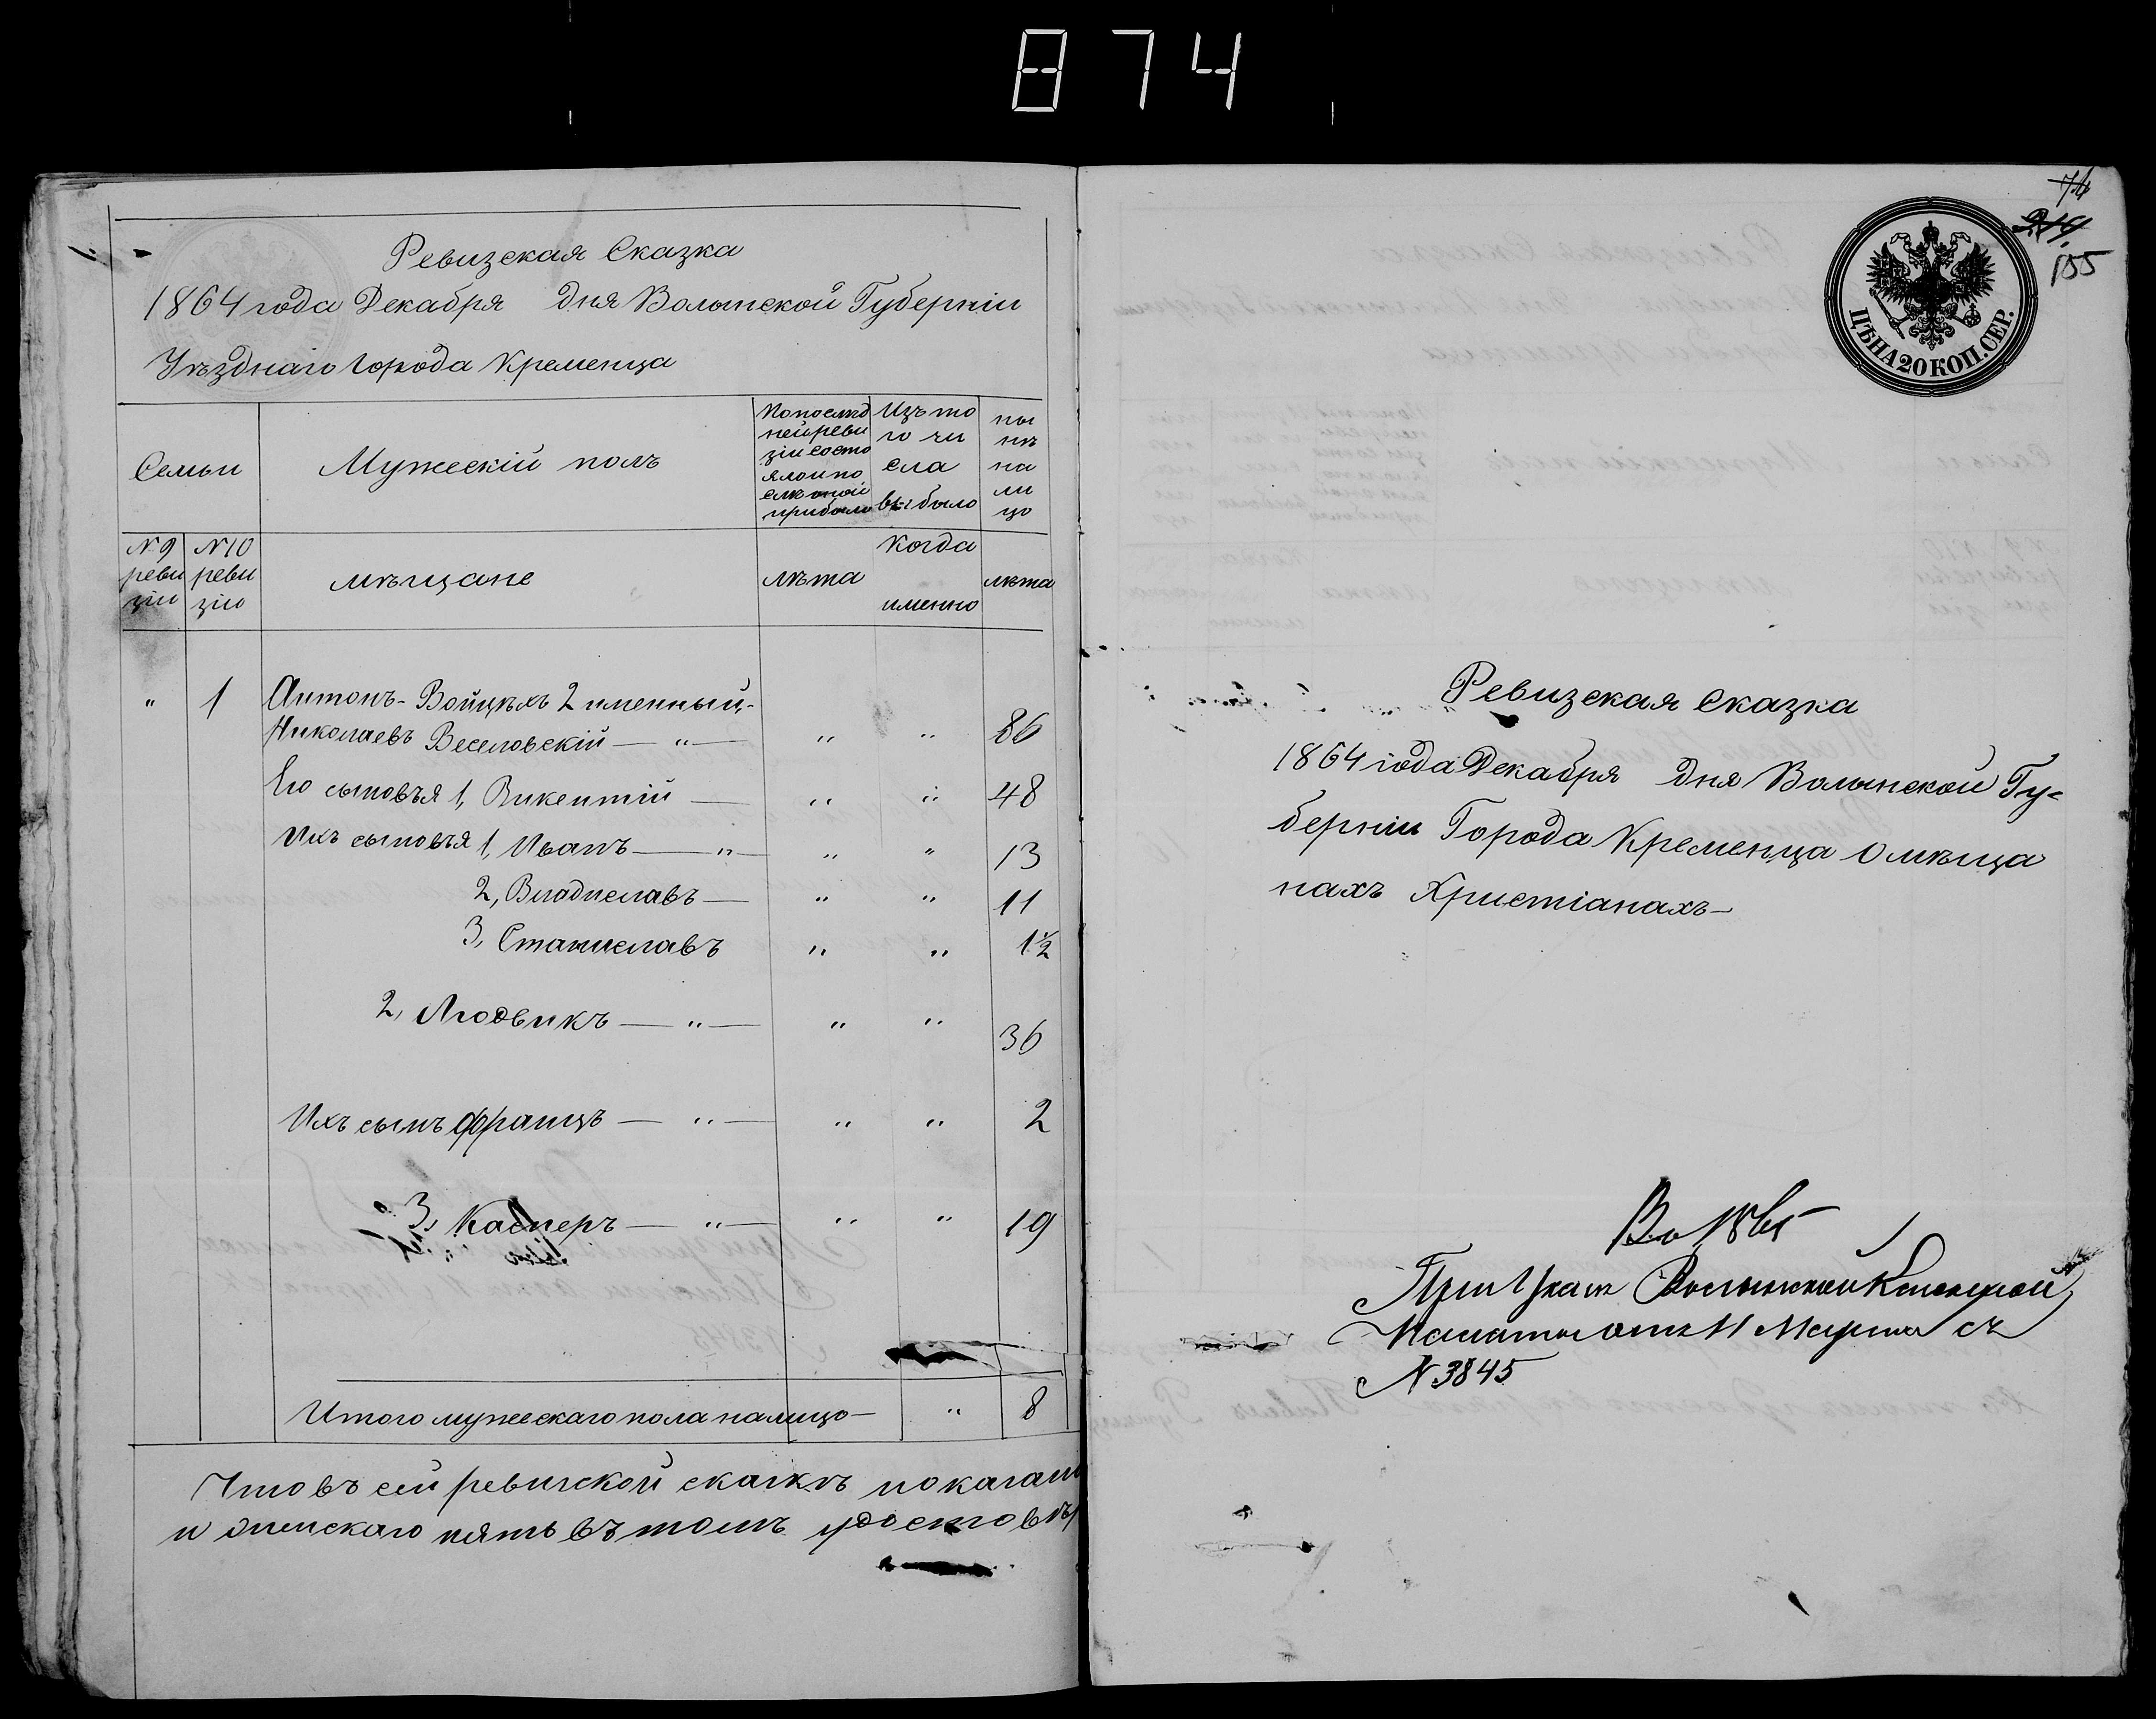 874
Ревизская Сказка
1864 года Декабря дня Волынской Губерніи
Уѣзднаго города Кременца
Семьи
Мужескій полъ
Попослѣд
ней реви
зіи состо
яло и по
слѣ оной
прибыло
Изъ то
го чи
сла
выбыло
ны
нѣ
на
ли
цо
№9
реви
зіи
№10
реви
зіи
мѣщане
лѣта
Когда
именно
лѣта
" 1 Антонъ-Войцѣхъ 2 именный,-
Николаевъ Веселовскій — " — " " 86
Его сыновья 1, Викентій — " " 48
Ихъ сыновья 1, Иванъ — " — " " 13
2, Владиславъ — " " 11
3, Станиславъ " " 1½
2, Людвикъ — " — " " 36
Ихъ сынъ Францъ — " — " " 2
3, Касперъ — " — " " 19
Итого мужескаго пола налицо — " 8
Что въ сей ревизской сказкѣ показан
и женскаго пять въ томъ удостовѣр
74
219.
155
ЦѢНА 20 КОП. СЕР.
Ревизская сказка
1864 года Декабря дня Волынской Гу-
берніи Города Кременца О мѣща
нахъ Христіанахъ—
При Указѣ Волынской Казенной
Палаты отъ 11 Марта съ
№ 3845